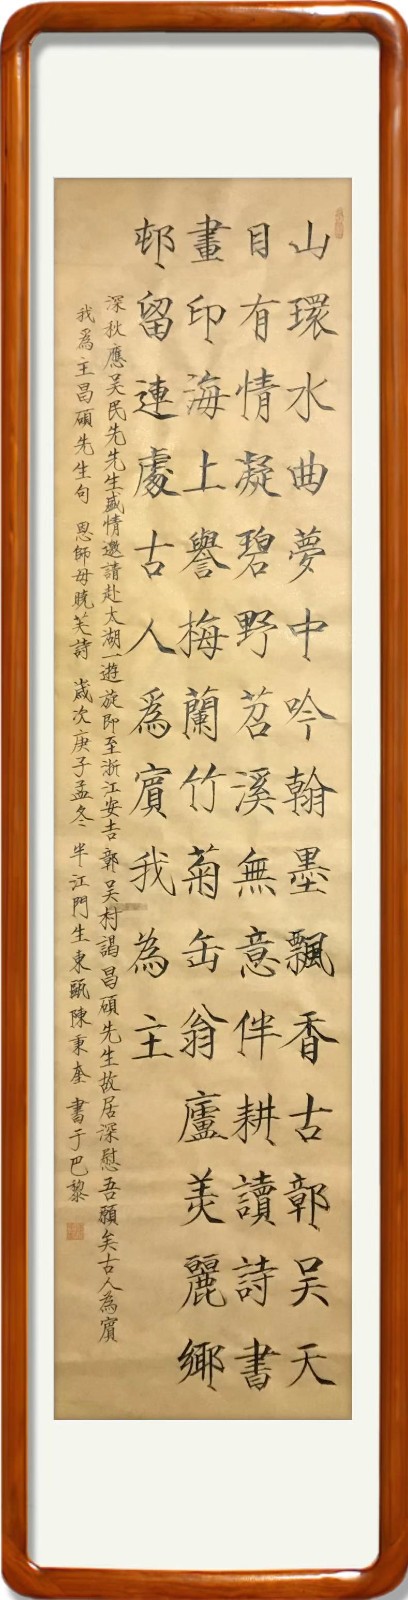 山環水曲夢中吟翰墨飄香古鄣吴天
目有情凝碧野苕溪無意伴耕讀詩書
畫印海上譽梅蘭竹菊缶翁廬美麗鄉
邨留連處古人爲賓我為主
深秋應吴民先先生盛情邀請赴太湖一遊旋即至浙江安吉鄣吴村謁昌碩先生故居深慰吾願矣古人為賓
我爲主昌碩先生句 恩師母曉芙詩 歲次庚子孟冬 半江門生東甌陳秉奎 書于巴黎